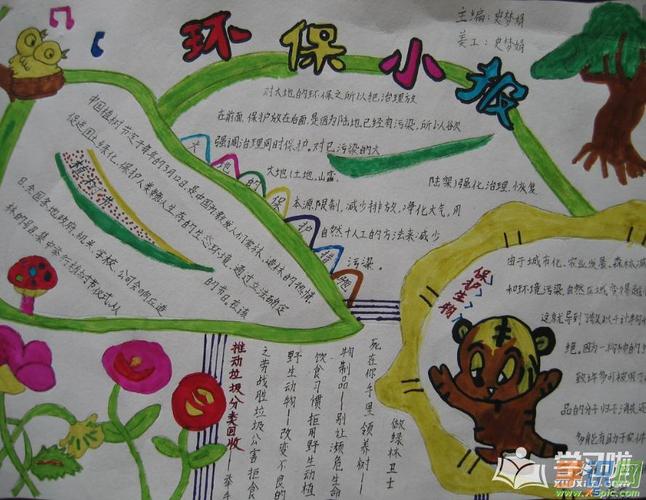 主编:史梦娟
美工:史梦娟
环保小报
对大地的环保之所以把治理放
在前面,保护放在后面,是因为陆地已经有污染,所以必须
强调治理同时保护,对已污染的大
大地(土地、山富、
陆架)强化治理,恢复
本源,限制,减少排放,净化大气,用
自然+人工的方法来减少
污染。
大地的保护措施
中国植树节定于每年的3月12日,是由国
促进国土绿化,保护人类赖以生存的生态环境,通过立法确定
的节日。在该
日,全国各地政府、机关、学校、公司会响应造
林的号召,集中举行植树节仪式,从
植树节
保护生物
由于城市化、农业发展、森林减
和环境污染,自然区域变得越
这就导到了数以千计物
绝,因为一物种的
品的分子归于消
多能有助于农作
推动垃圾分类回收
之劳战胜垃圾公害拒食
野生动物——改变不良的
饮食习惯拒用野生动植
物制品——别让濒危生命
死在你手里领养树
做绿林卫士
学习啦
www.xuexila.com
www.X5pic.com